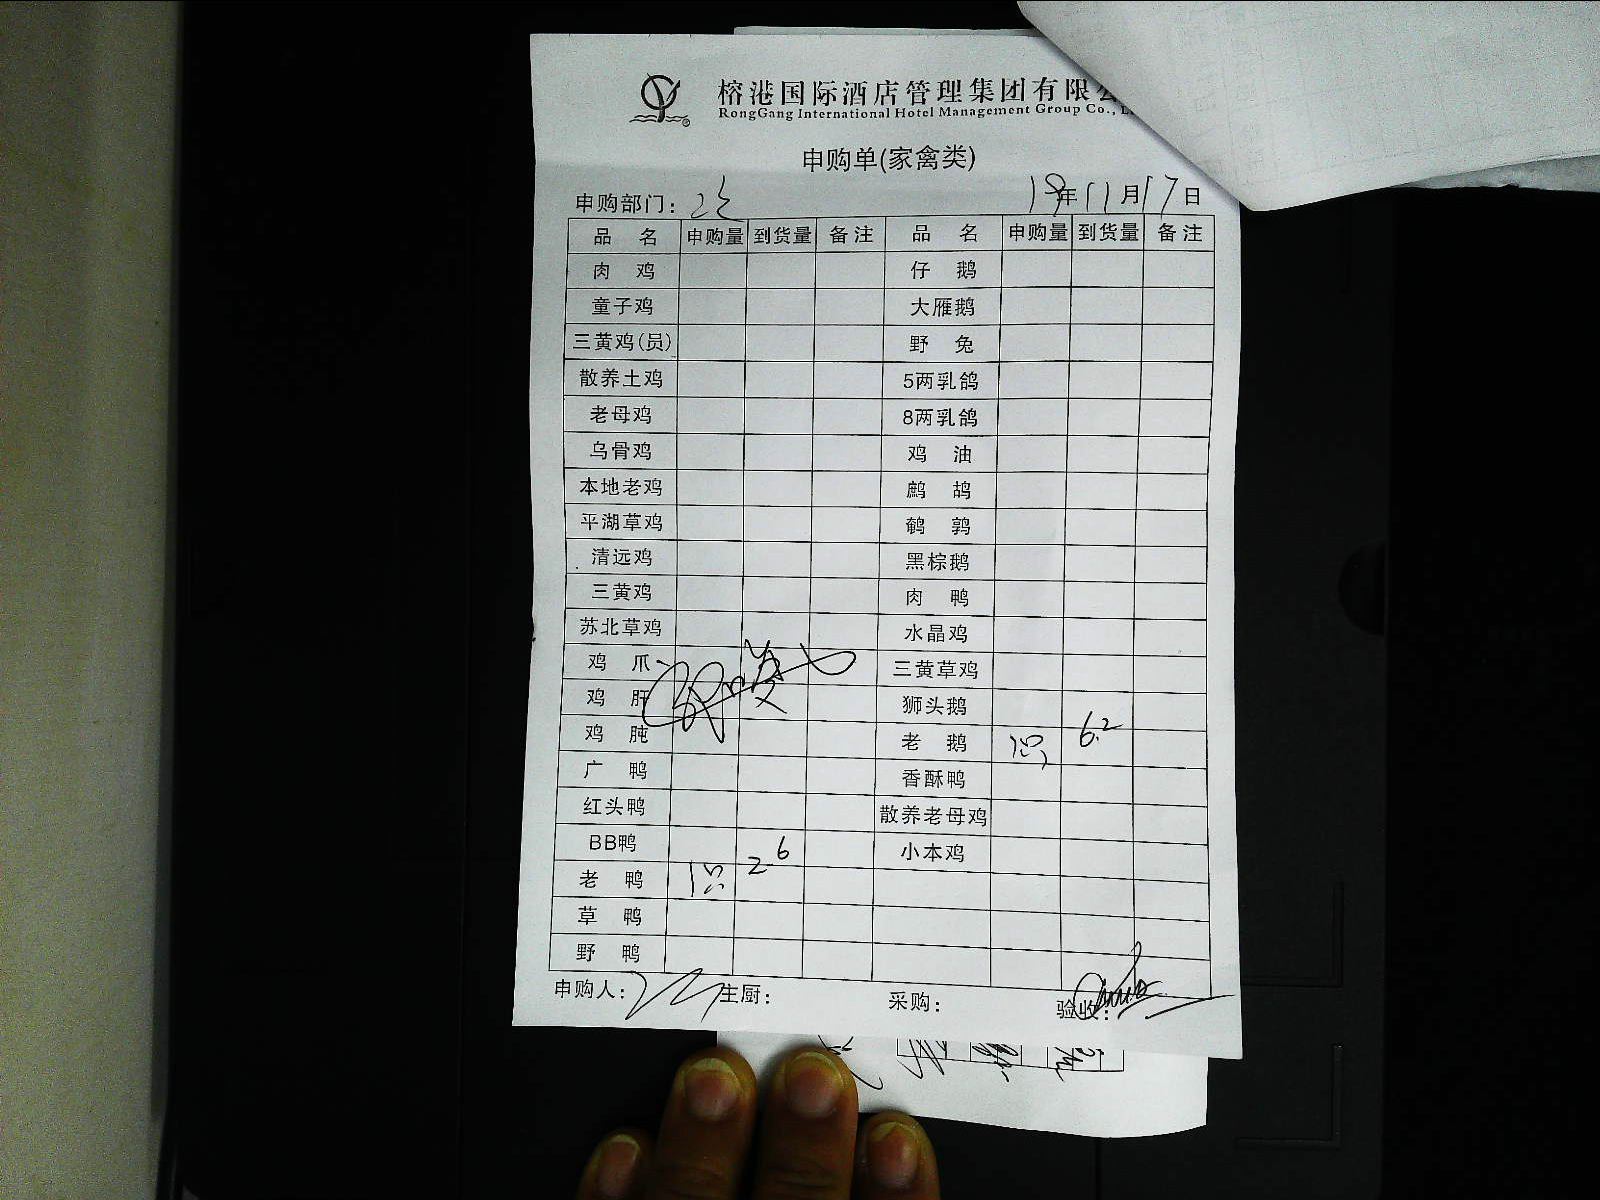 榕港国际酒店管理集团有限
RongGang International Hotel Management Group Co.,
申购单(家禽类)
申购部门: 19年11月17日
品名 申购量 到货量 备注 品名 申购量 到货量 备注
肉鸡 仔鹅
童子鸡 大雁鹅
三黄鸡(员) 野兔
散养土鸡 5两乳鸽
老母鸡 8两乳鸽
乌骨鸡 鸡油
本地老鸡 鹧鸪
平湖草鸡 鹌鹑
清远鸡 黑棕鹅
三黄鸡 肉鸭
苏北草鸡 水晶鸡
鸡爪 三黄草鸡
鸡肝 狮头鹅
鸡肫 老鹅 1只 6.2
广鸭 香酥鸭
红头鸭 散养老母鸡
BB鸭 小本鸡
老鸭 1只 2.6
草鸭
野鸭
申购人: 主厨: 采购: 验收: